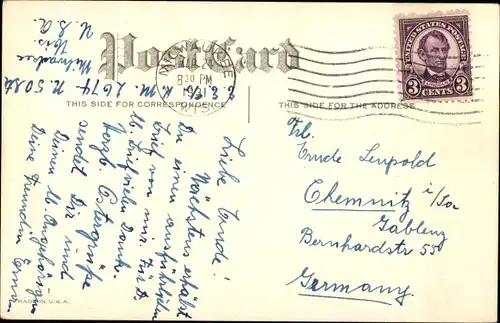 Post Card
THIS SIDE FOR CORRESPONDENCE
THIS SIDE FOR THE ADDRESS
MILWAUKEE
830 PM
1931
WIS.
UNITED STATES POSTAGE
3 3
CENTS
Milwaukee
Wis
U.S.A.
Liebe Trude!
Nächstens erhältst
Du einen ausführlichen
Brief von mir. Für d.
lb. Brief vielen Dank.
Herzl. Ostergrüße
sendet Dir und
Deinen lb. Angehörigen
Deine Freundin Erna
Frl.
Trude Leupold
Chemnitz i/Sa
Gablenz
Bernhardstr 55
Germany
MADE IN U.S.A.